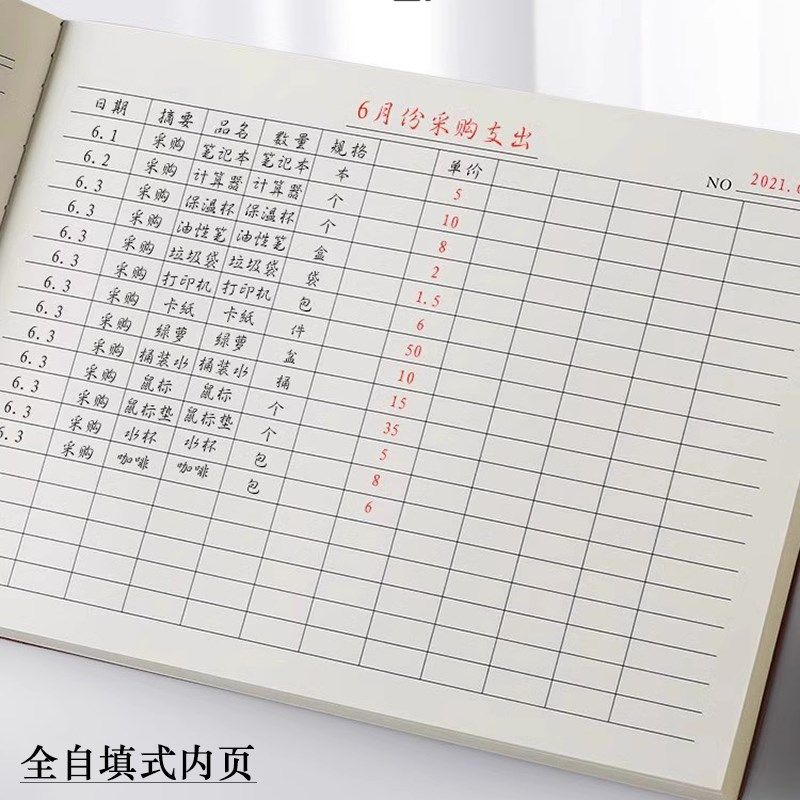 6月份采购支出
NO 2021.
日期 摘要 品名 数量 规格 单价
6.1 采购 笔记本 笔记本 本 5
6.2 采购 计算器 计算器 个 10
6.3 采购 保温杯 保温杯 个 8
6.3 采购 油性笔 油性笔 盒 2
6.3 采购 垃圾袋 垃圾袋 袋 1.5
6.3 采购 打印机 打印机 包 6
6.3 采购 卡纸 卡纸 件 50
6.3 采购 绿萝 绿萝 盆 10
6.3 采购 桶装水 桶装水 桶 15
6.3 采购 鼠标 鼠标 个 35
6.3 采购 鼠标垫 鼠标垫 个 5
6.3 采购 水杯 水杯 包 8
6.3 采购 咖啡 咖啡 包 6
全自填式内页